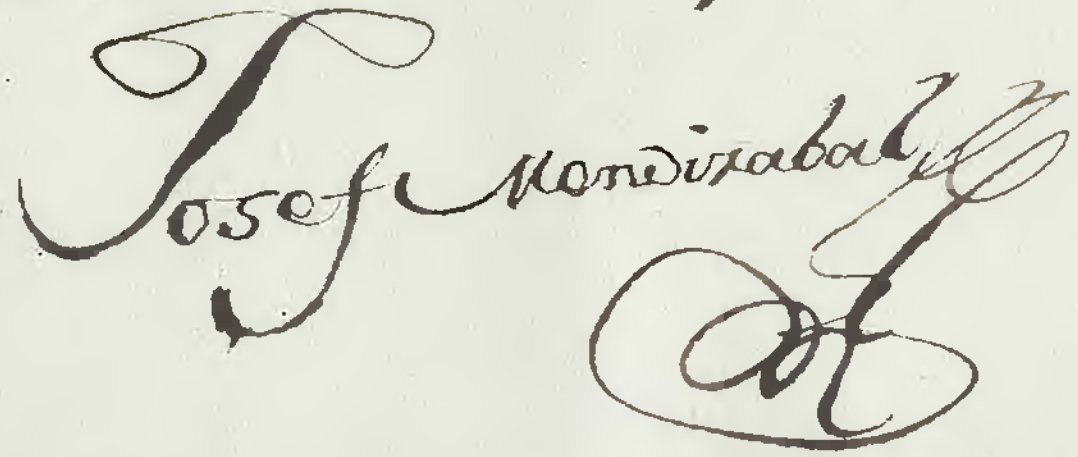 Josef Mendizabal